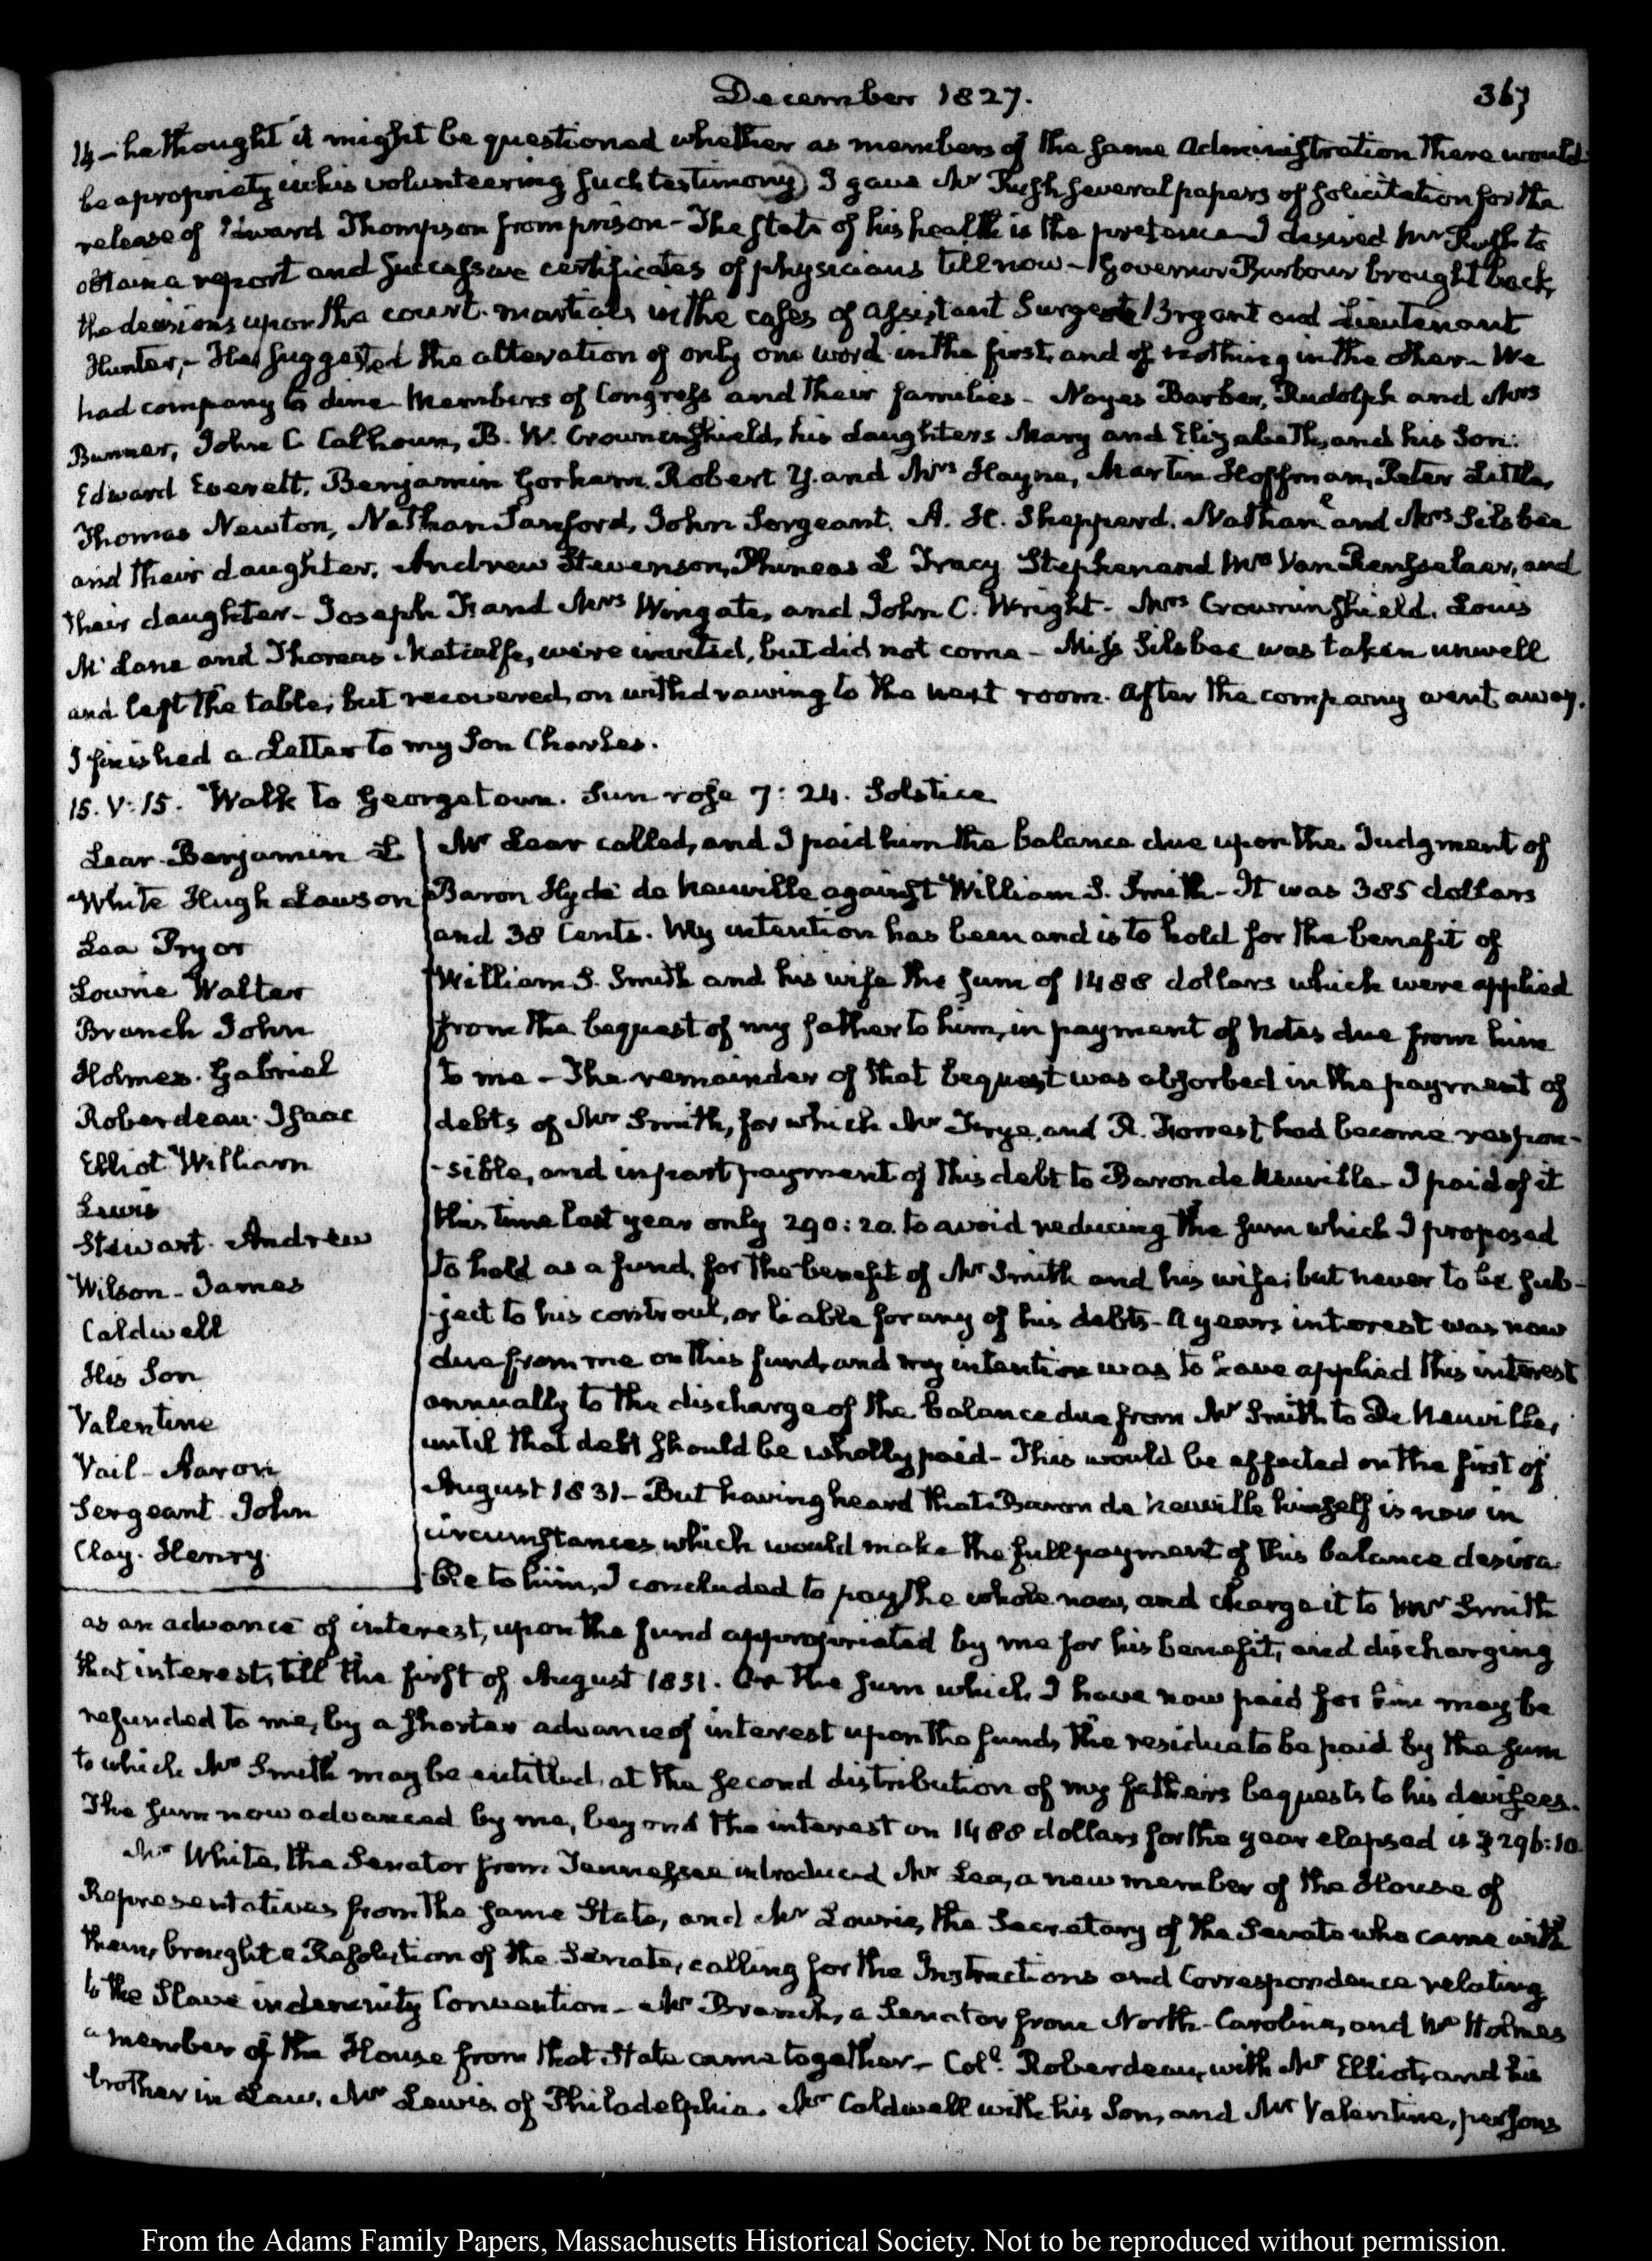 December 1827.
367
14 — he thought it might be questioned whether as members of the same Administration there would
be a propriety in his volunteering such testimony) I gave Mr Rush several papers of solicitation for the
release of Edward Thompson from prison — The state of his health is the pretence — I desired Mr Rush to
obtain a report and successive certificates of physicians till now — Governor Barbour brought back
the decisions upon the court-martials in the cases of Assistant Surgeon Bryant and Lieutenant
Hunter, — He suggested the alteration of only one word in the first, and of nothing in the other — We
had company to dine — Members of Congress and their families — Noyes Barber, Rudolph and Mrs
Bunner, John C. Calhoun, B. W. Crowninshield, his daughters Mary and Elizabeth, and his Son:
Edward Everett, Benjamin Gorham, Robert Y. and Mrs Hayne, Martin Hoffman, Peter Little,
Thomas Newton, Nathan Sanford, John Sergeant, A. H. Shepperd, Nathan.e and Mrs Silsbee
and their daughter, Andrew Stevenson, Phineas L Tracy Stephen and Mrs Van Rensselaer, and
their daughter — Joseph F. and Mrs Wingate, and John C. Wright — Mrs Crowninshield, Louis
McLane and Thomas Metcalfe, were invited, but did not come — Miss Silsbee was taken unwell
and left the table; but recovered, on withdrawing to the next room. After the company went away,
I finished a Letter to my Son Charles.
15. V: 15. Walk to Georgetown. Sun rose 7: 24. Solstice
Lear. Benjamin L
White Hugh Lawson
Lea Pryor
Lowrie Walter
Branch John
Holmes. Gabriel
Roberdeau. Isaac
Elliot William
Lewis
Stewart. Andrew
Wilson — James
Caldwell
His Son
Valentine
Vail — Aaron
Sergeant John
Clay. Henry.
Mr Lear called, and I paid him the balance due upon the Judgment of
Baron Hyde de Neuville against William S. Smith — It was 385 dollars
and 38 Cents. My intention has been and is to hold for the benefit of
William S. Smith and his wife the sum of 1488 dollars which were applied
from the bequest of my father to him, in payment of notes due from him
to me — The remainder of that bequest was absorbed in the payment of
debts of Mr Smith, for which Mr Frye, and R. Forrest had become respon-
-sible, and in part payment of this debt to Baron de Neuville — I paid of it
this time last year only 290: 20. to avoid reducing the sum which I proposed
to hold as a fund, for the benefit of Mr Smith and his wife; but never to be sub-
-ject to his controul, or liable for any of his debts — A years interest was now
due from me on this fund, and my intention was to have applied this interest
annually to the discharge of the balance due from Mr Smith to De Neuville,
until that debt should be wholly paid — This would be effected on the first of
August 1831 — But having heard that Baron de Neuville himself is now in
circumstances which would make the full payment of this balance desira-
-ble to him, I concluded to pay the whole now, and charge it to Mr Smith
as an advance of interest, upon the fund appropriated by me for his benefit, and discharging
that interest, till the first of August 1831. Or the sum which I have now paid for him may be
refunded to me, by a shorter advance of interest upon the fund, the residue to be paid by the sum
to which Mr Smith may be entitled, at the second distribution of my fathers bequests to his devisees.
The sum now advanced by me, beyond the interest on 1488 dollars for the year elapsed is $ 296: 10
Mr White, the Senator from Tennessee introduced Mr Lea, a new member of the House of
Representatives from the same State, and Mr Lowrie, the Secretary of the Senate who came with
them, brought a Resolution of the Senate, calling for the Instructions and Correspondence relating
to the Slave indemnity Convention — Mr Branch, a Senator from North-Carolina, and Mr Holmes
a member of the House from that State came together — Coll. Roberdeau, with Mr Elliot, and his
brother in Law, Mr Lewis of Philadelphia. Mr Caldwell with his Son, and Mr Valentine, persons
From the Adams Family Papers, Massachusetts Historical Society. Not to be reproduced without permission.